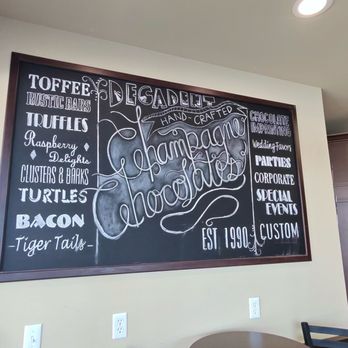 TOFFEE
RUSTIC BARS
TRUFFLES
Raspberry
Delights
CLUSTERS & BARKS
TURTLES
BACON
-Tiger Tails-
DECADENT
HAND-CRAFTED
Champagne
Chocolates
EST 1990
CHOCOLATE
IMPRINTING
Wedding Favors
PARTIES
CORPORATE
SPECIAL
EVENTS
CUSTOM